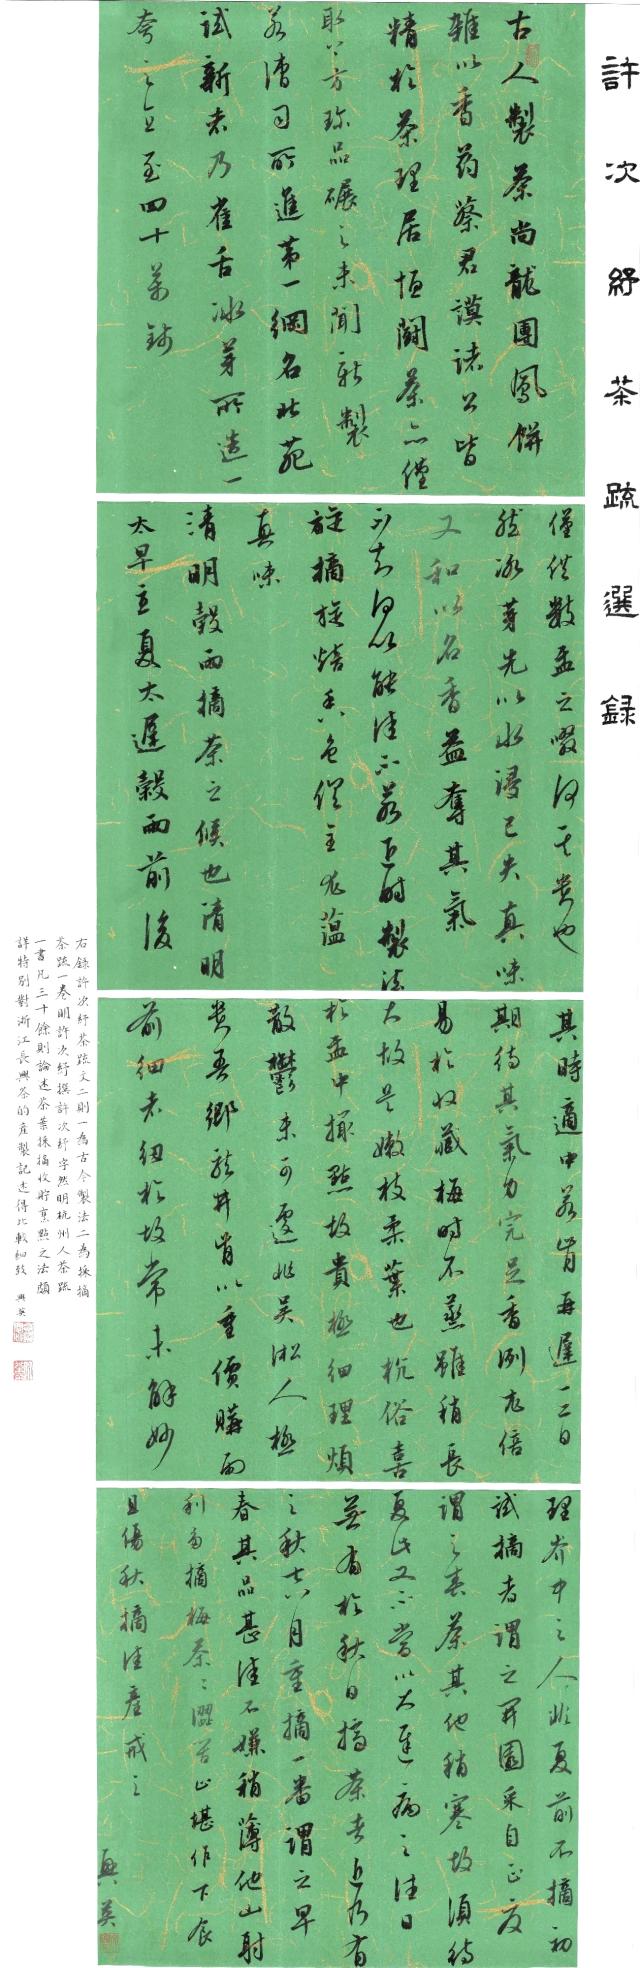 許次紓茶疏選錄
古人製茶尚龍團鳳餅
雜以香药蔡君謨諸公皆
精於茶理居恒鬪茶亦僅
取上方珍品碾之未聞新製
若漕司所進第一綱名北苑
試新者乃雀舌冰芽所造一
夸之直至四十萬錢
僅供數盂之啜何其貴也
然冰芽先以水浸已失真味
又和以名香益奪其氣
不知何以能佳不若近時製法
旋摘旋焙香色俱全尤蘊
真味
清明穀雨摘茶之候也清明
太早立夏太遲穀雨前後
其時適中若肯再遲一二日
期待其氣力完足香洌尤倍
易於收藏梅時不蒸雖稍長
大故是嫩枝柔葉也杭俗喜
於盂中撮點故貴極細理煩
散鬱未可遽非吳淞人極
貴吾鄉龍井肯以重價購雨
前細者狃於故常未解妙
理岕中之人非夏前不摘初
試摘者謂之開園采自正夏
謂之春茶其地稍寒故須待
夏此又不當以太遲病之往日
無有於秋日摘茶者近乃有
之秋七八月重摘一番謂之早
春其品甚佳不嫌稍薄他山射
利多摘梅茶梅茶澀苦止堪作下食
且傷秋摘佳產戒之
興英
右錄許次紓茶疏文二則一為古今製法二為採摘
茶疏一卷明許次紓撰許次紓字然明杭州人茶疏
一書凡三十餘則論述茶葉採摘收貯烹點之法頗
詳特別對浙江長興茶的產製記述得比較細致 興英